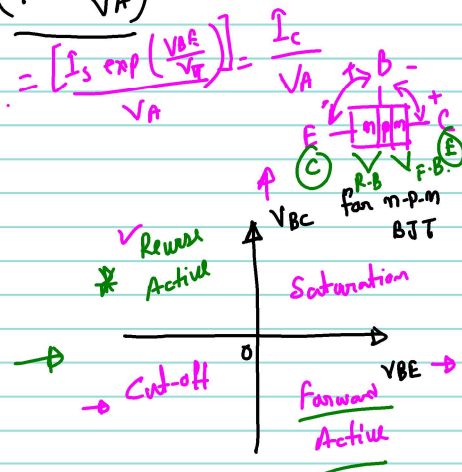 VA)
= [Is exp(VBE/VT)]/VA = Ic/VA
B -
+
E n p n C
C R-B F.B. E
for n-p-n
BJT
VBC
Reverse
* Active
Saturation
0
VBE
Cut-off
Forward
Active